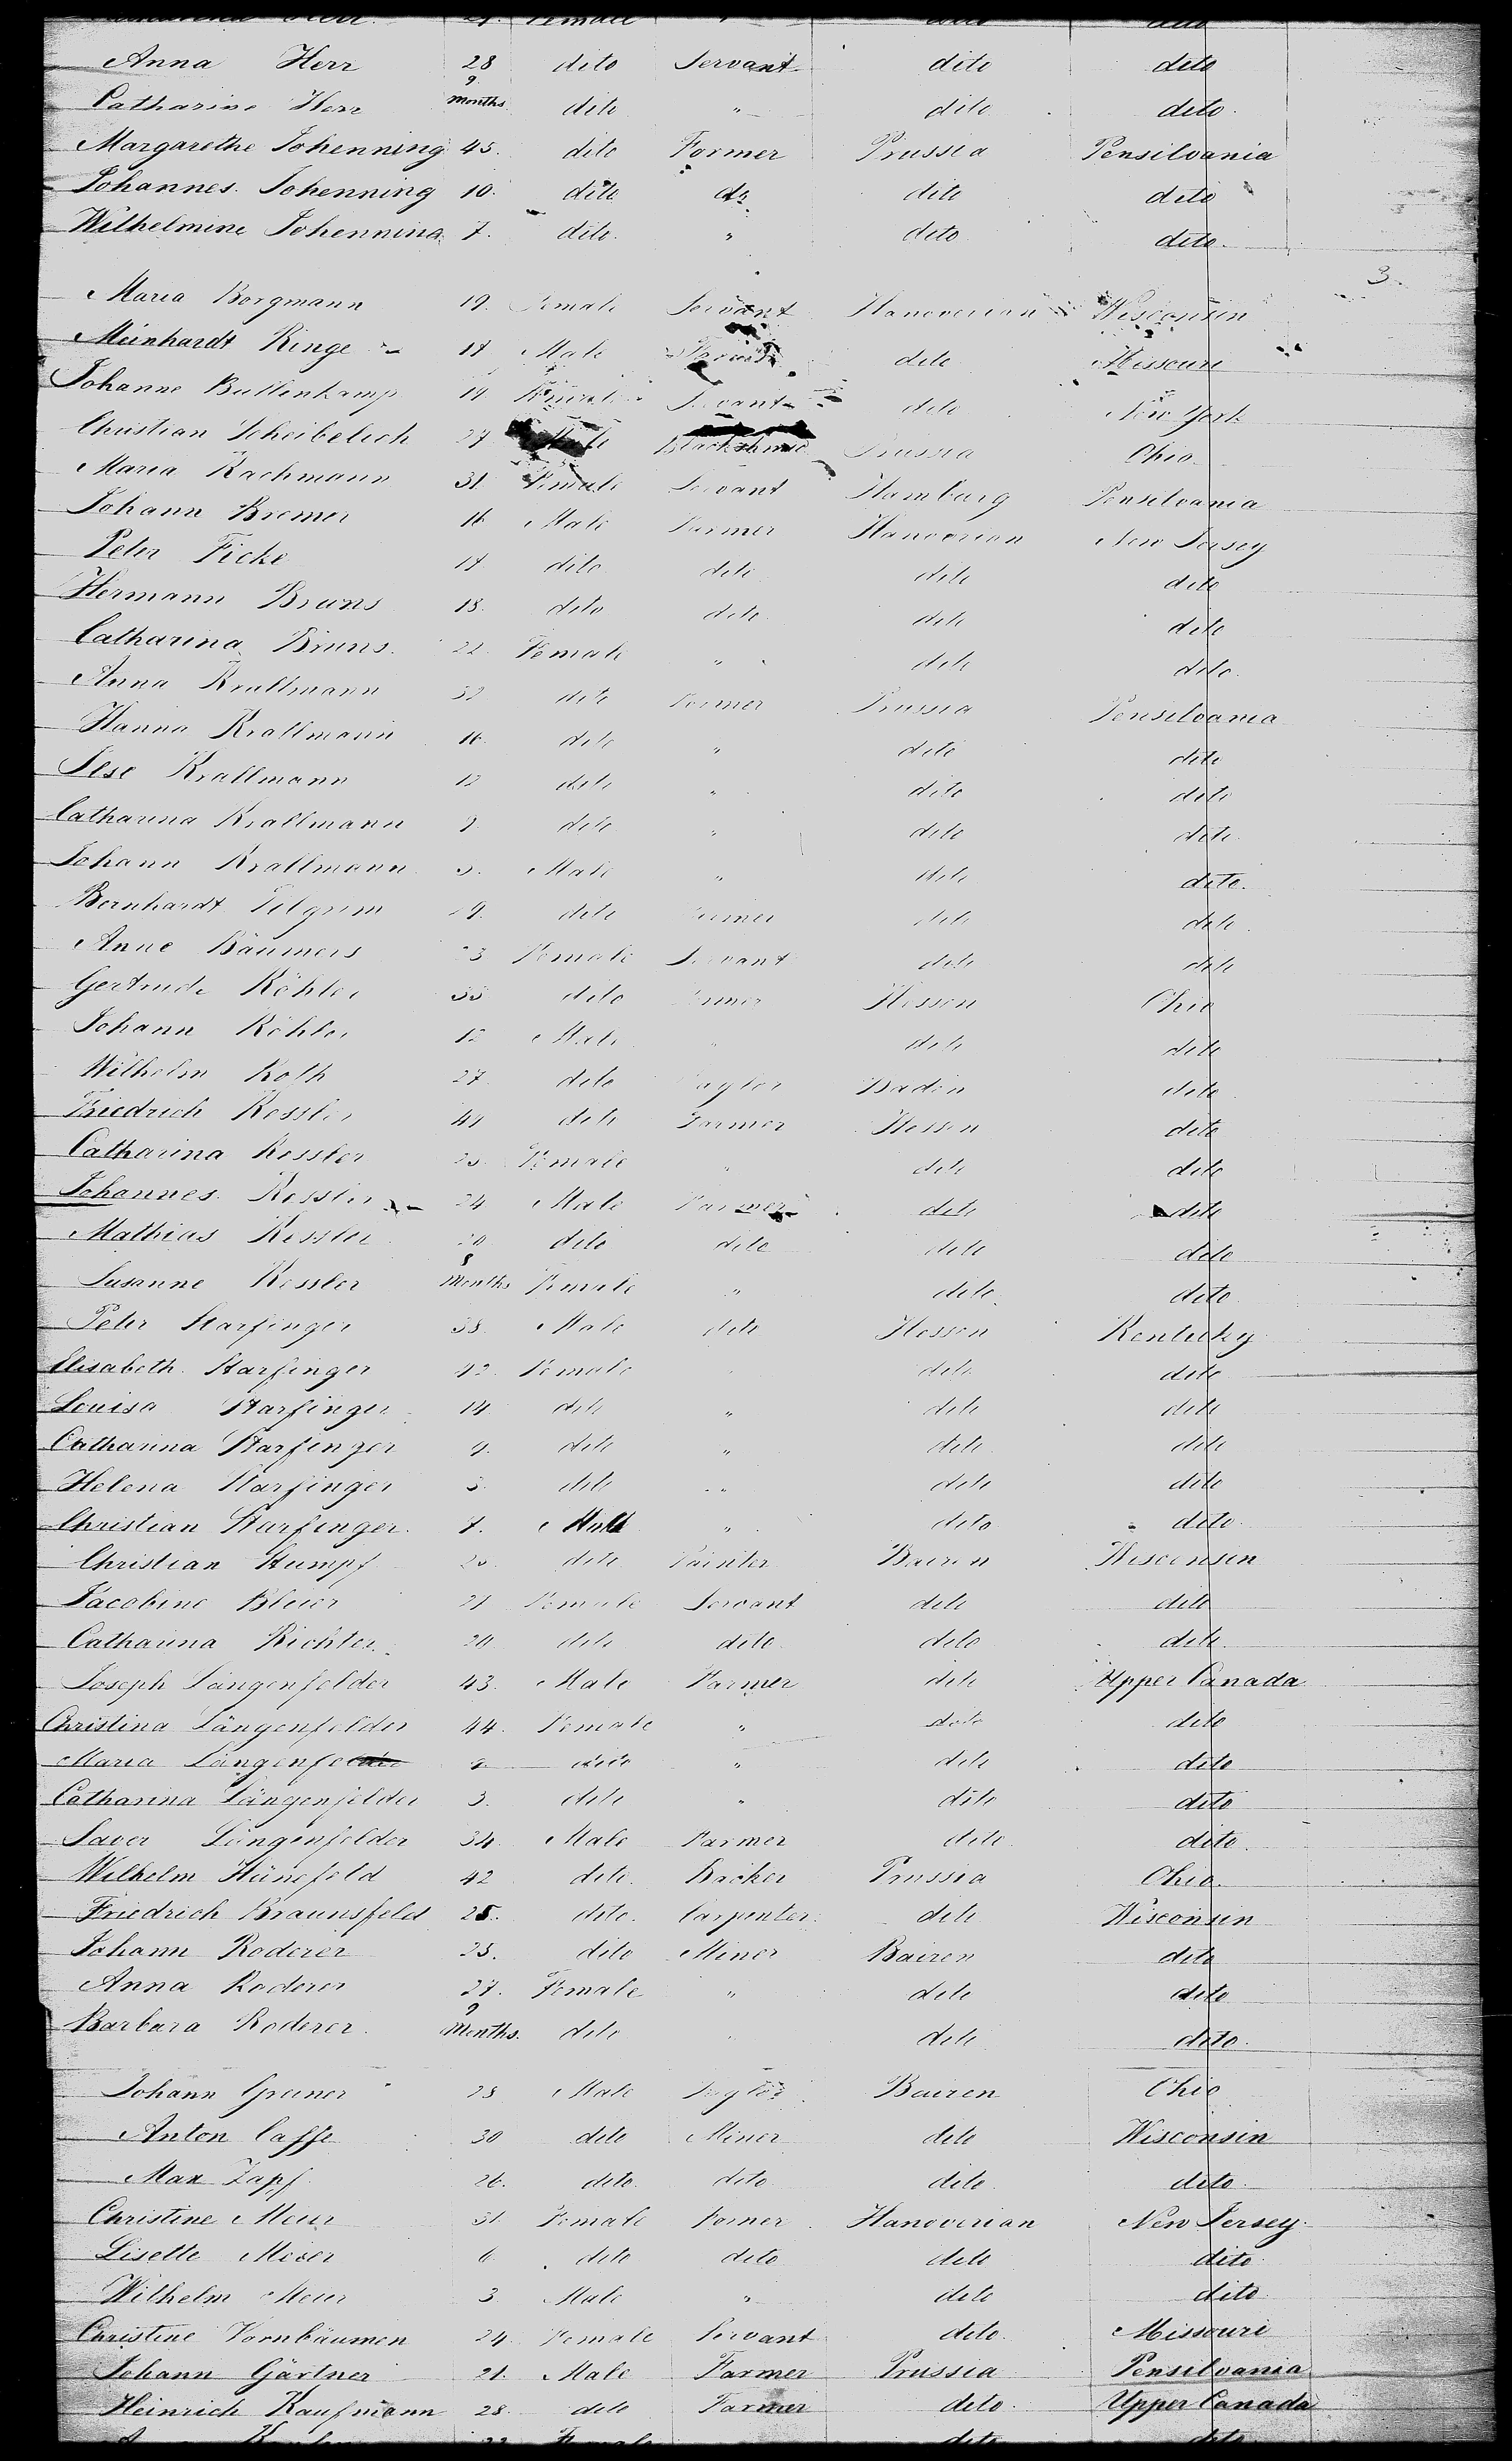 Anna Herr 28 dito Servant dito dito
Catharine Herr 9 Months dito " dito dito.
Margarethe Johenning 45. dito Farmer Prussia Pensilvania
Johannes Johenning 10. dito do dito dito
Wilhelmine Johenning 7. dito. " dito dito.
3
Maria Borgmann 19. Female Servant Hanoverian Wisconsin
Meinhardt Ringe 17 Male dito Missouri
Johanne Bullenkamp 19 Female Servant dito New York
Christian Scheibelich 27 Male Blacksmid Prussia Ohio
Maria Rachmann 31. Female Servant Hamburg Pensilvania
Johann Bremer 16 Male Farmer Hanoverian New Jersey
Peter Ficke 17 dito dito dito dito
Hermann Bruns 18. dito dito dito dito
Catharina Bruns. 22. Female " dito dito.
Anna Krallmann 32 dito Farmer Prussia Pensilvania
Hanna Krallmann 16. dito " dito dito
Ilse Krallmann 12 dito " dito dito
Catharina Krallmann 9. dito " dito dito.
Johann Krallmann Male " dito dito.
Bernhardt Pilgrim dito Farmer dito dito.
Anne Bäumers Female Servant dito dito
Gertrude Köhler dito Farmer Hessen Ohio
Johann Köhler 12 Male " dito dito
Wilhelm Roth 27 dito Taylor Baden dito
Friedrich Kessler dito Farmer Hessen dito
Catharina Kessler Female " dito dito
Johannes Kessler 24 Male Farmer dito dito
Mathias Kessler dito dito dito dito
Susanne Kessler 8 Months Female " dito. dito
Peter Starfinger 38. Male dito Hessen Kentucky
Elisabeth Starfinger 42. Female dito dito
Louisa Starfinger 14 dito " dito dito
Catharina Starfinger 9. dito " dito dito
Helena Starfinger dito " dito dito
Christian Starfinger. 7. Male " dito dito
Christian Stumpf dito Painter Bairen Wisconsin
Jacobine Bleier 21 Female Servant dito dito
Catharina Richter dito dito dito dito.
Joseph Längenfelder 43. Male Farmer dito Upper Canada
Christina Längenfelder 44. Female " dito dito
Maria Längenfelder dito " dito dito
Catharina Längenfelder 3. dito " dito dito
Saver Längenfelder 34. Male Farmer dito dito.
Wilhelm Hünefeld 42 dito. Backer Prussia Ohio.
Friedrich Braunsfeld 25. dito. Carpenter dito Wisconsin
Johann Roderer 25. dito Miner Bairen dito
Anna Roderer 27. Female " dito dito
Barbara Roderer. 9 Months. dito " dito dito.
Johann Greiner 28 Male Taylor Bairen Ohio
Anton Caffe 30 dito Miner dito Wisconsin
Max Zapf 26. dito. dito dito. dito.
Christine Meier 31 Female Farmer Hanoverian New Jersey.
Lisette Meier 6 dito dito dito dito.
Wilhelm Meier 3 Male " dito dito
Christine Vornbäumen 24. Female Servant dito. Missouri
Johann Gärtner 21. Male Farmer Prussia Pensilvania
Heinrich Kaufmann 28. dito Farmer dito. Upper Canada